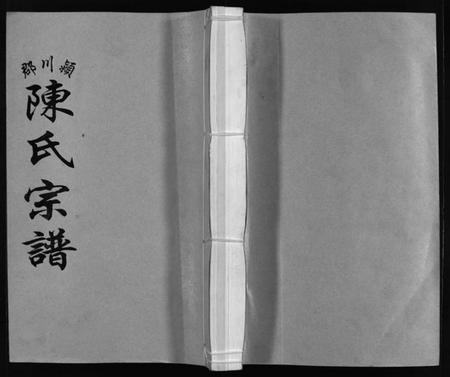 潁川郡
陳氏宗譜